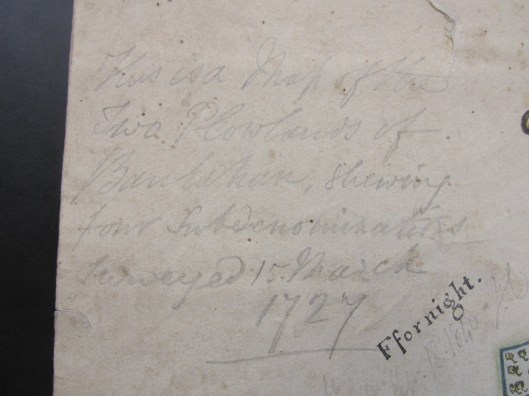 This is a Map of the
Two Plowlands of
shewing
four Subdenominations
Surveyed 15. March
1727
Ffornight.